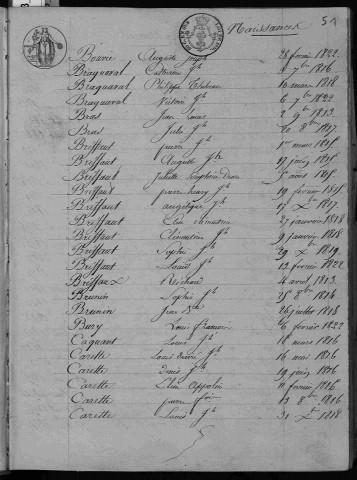 Naissances
51
Bouvie Auguste Joseph 28 février 1822.
Braquaval Catherine Jh 4 7bre 1816
Braquaval Philippe 16 mars 1818
Braquaval Victoire Jh 6 7bre 1822
Bras Jean Louis 2 9bre 1813.
Bras Jules Jh 20 8bre 1817.
Briffaut pierre Jh 1er mars 1815
Briffaut Auguste Jh 17 juin 1815
Briffaut Juliette 5 août 1815
Briffaut pierre henry Jh 19 février 1815
Briffaut angélique Jh 17 Xbre 1817.
Briffaut Clémentine 27 janvier 1818
Briffaut Clémentine 9 janvier 1818.
Briffaut Sophie Jh 29 Xbre 1819
Briffaut Louis Jh 13 février 1822
Briffaut 4 avril 1813.
Brunin Sophie Jh 25 8bre 1816
Brunin Jean Bte 26 juillet 1818
Bury Louis françois 6 février 1822
Caquant Louis Jh 18 mars 1816
Carette Louis Jh 16 mai 1816
Carette Denis Jh 19 juin 1816
Carette 11 février 1816
Carette pierre 13 8bre 1816
Carette Louis Jh 31 Xbre 1818